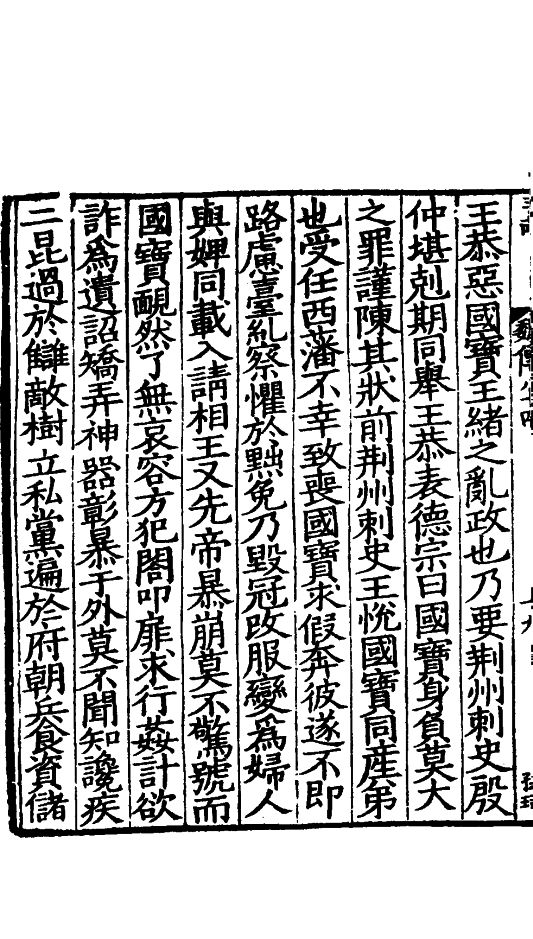 王恭惡國寶王緒之亂政也乃要荆州刺史殷
仲堪剋期同舉王恭表德宗曰國寶身負莫大
之罪謹陳其狀前荆州刺史王忱國寶同産弟
也受任西藩不幸致喪國寶求假奔彼遂不即
路慮臺糺察懼於黜免乃毀冠改服變爲婦人
與婢同載入請相王又先帝暴崩莫不驚號而
國寶靦然了無哀容方犯閤叩扉求行姦計欲
詐爲遺詔矯弄神器彰暴于外莫不聞知讒疾
二昆過於讎敵樹立私黨遍於府朝兵食資儲